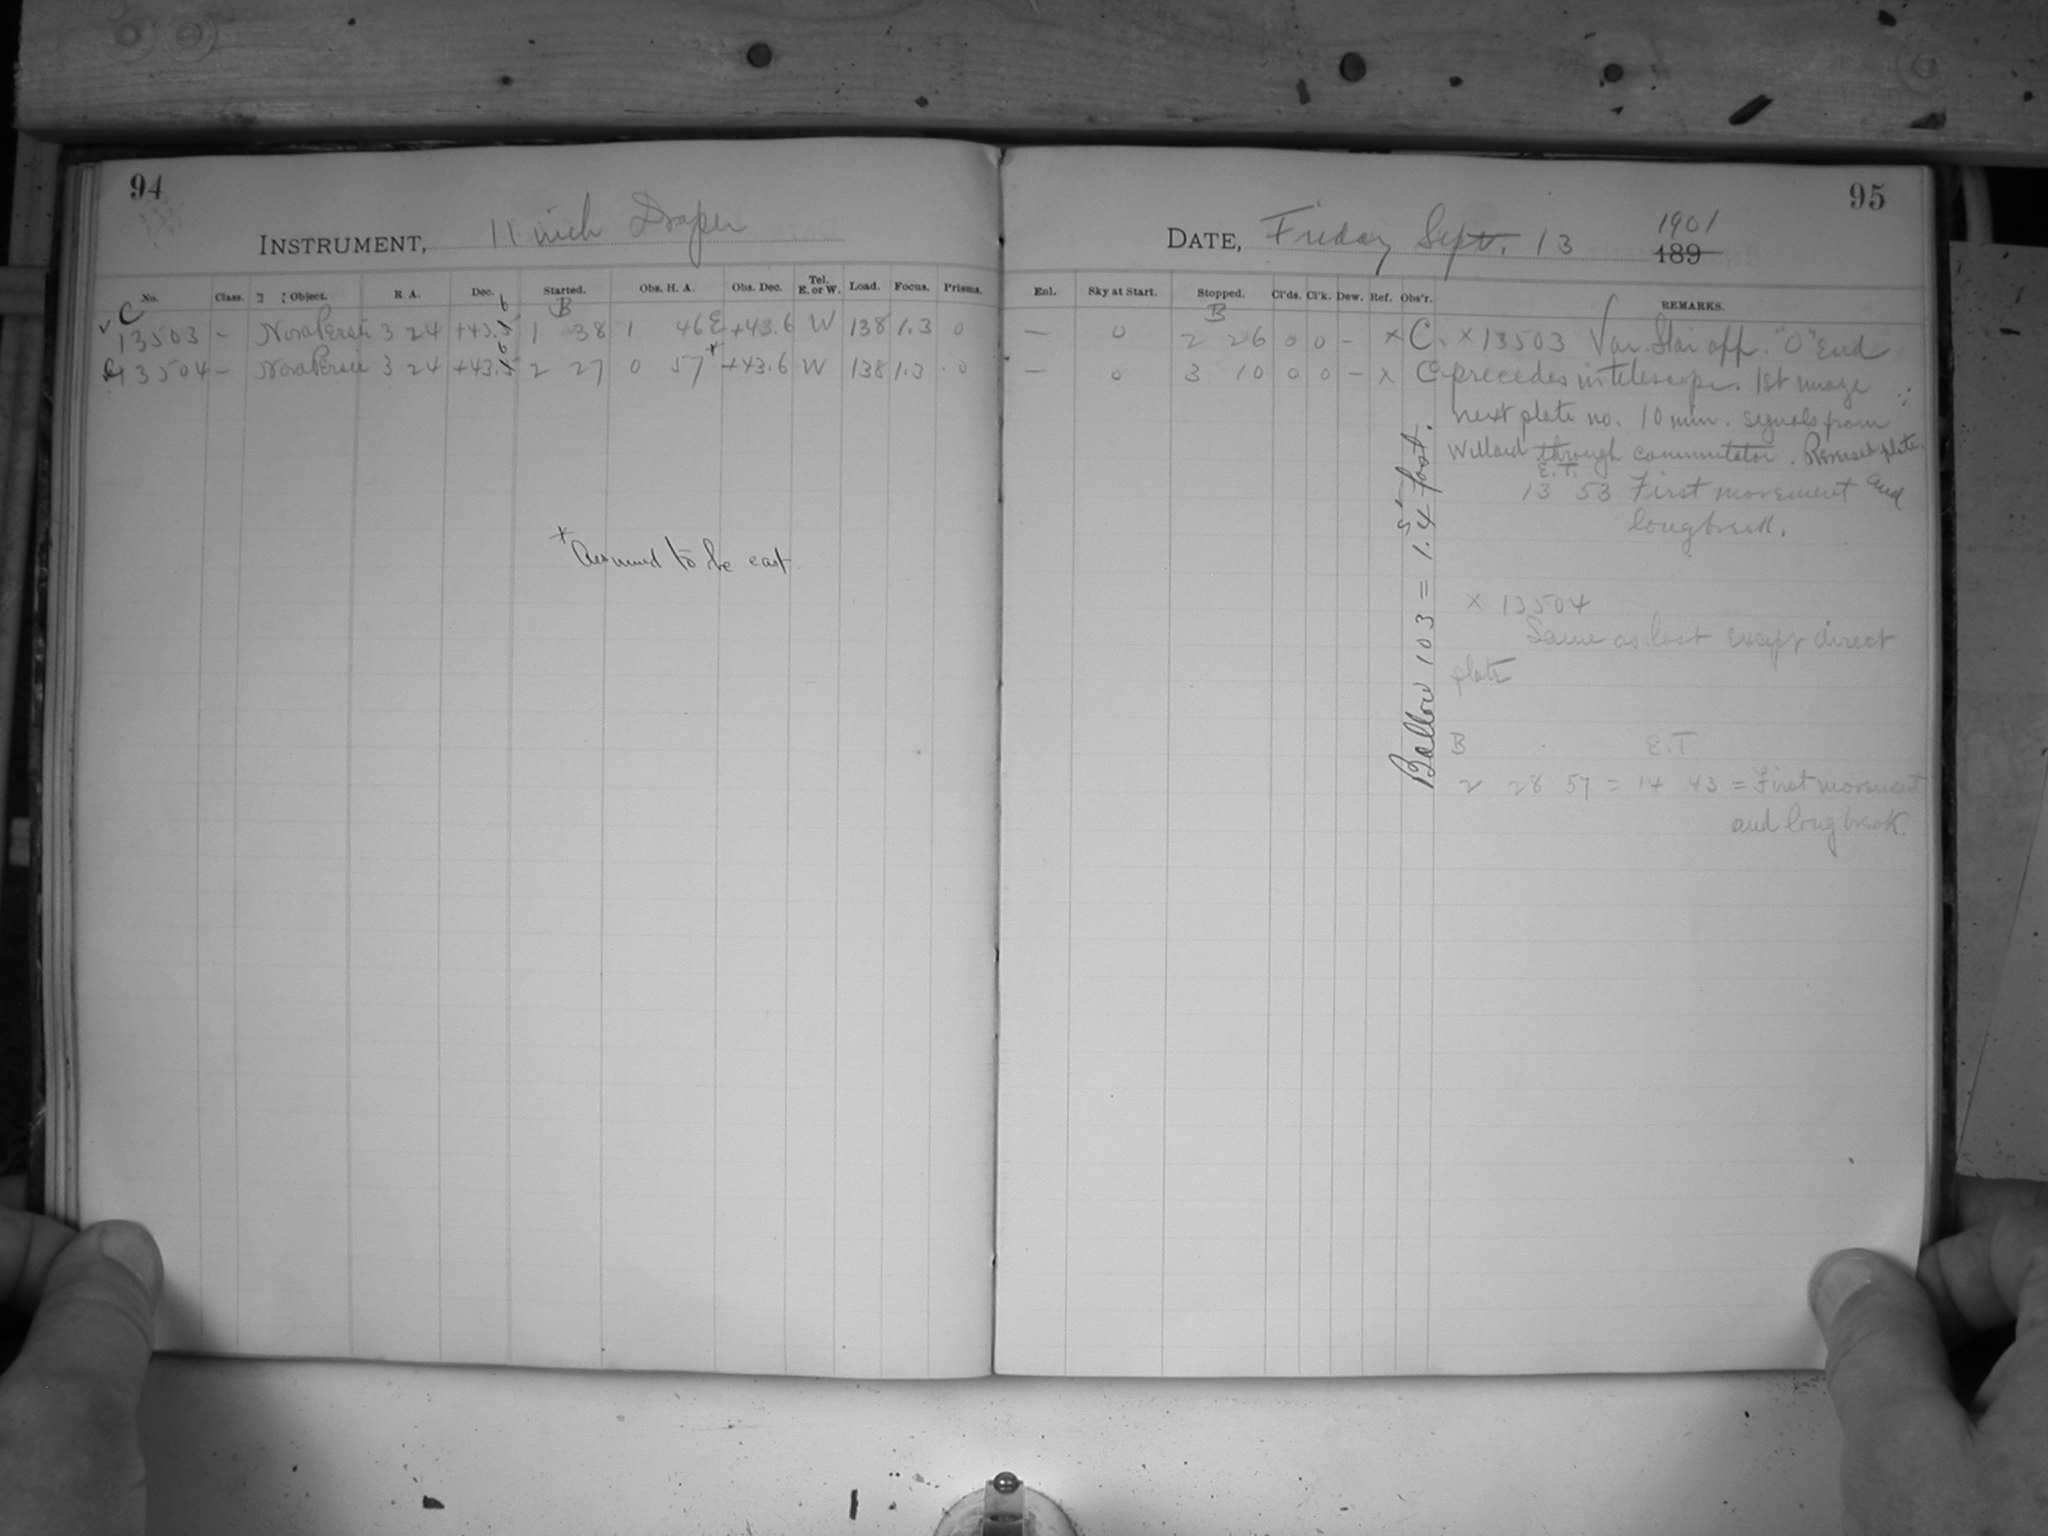 94
INSTRUMENT, 11 inch Draper
No. Class. Object. R A. Dec. Started. Obs. H. A. Obs. Dec. Tel. E. or W. Load. Focus. Prisms.
C B
13503 – Nova Persei 3 24 +43.6 1 38 1 46 E +43.6 W 138 1.3 0
13504 – Nova Persei 3 24 +43.6 2 27 0 57 x +43.6 W 138 1.3 0
x Assumed to be east.
95
DATE, Friday Sept. 13 1901
189
Enl. Sky at Start. Stopped. Cl'ds. Cl'k. Dew. Ref. Obs'r. REMARKS.
B
— 0 2 26 0 0 – x C. x 13503 Var. Star app. "O" End
— 0 3 10 0 0 – x C precedes in telescope. 1st image
next plate no. 10 min. signals from
Willard through commutator. Reversed plate.
E.T.
13 53 First movement and
long break.
x 13504
Same as last except direct
plate
B E.T
2 28 57 = 14 43 = First movement
and long break.
103 = 1.4 foot.